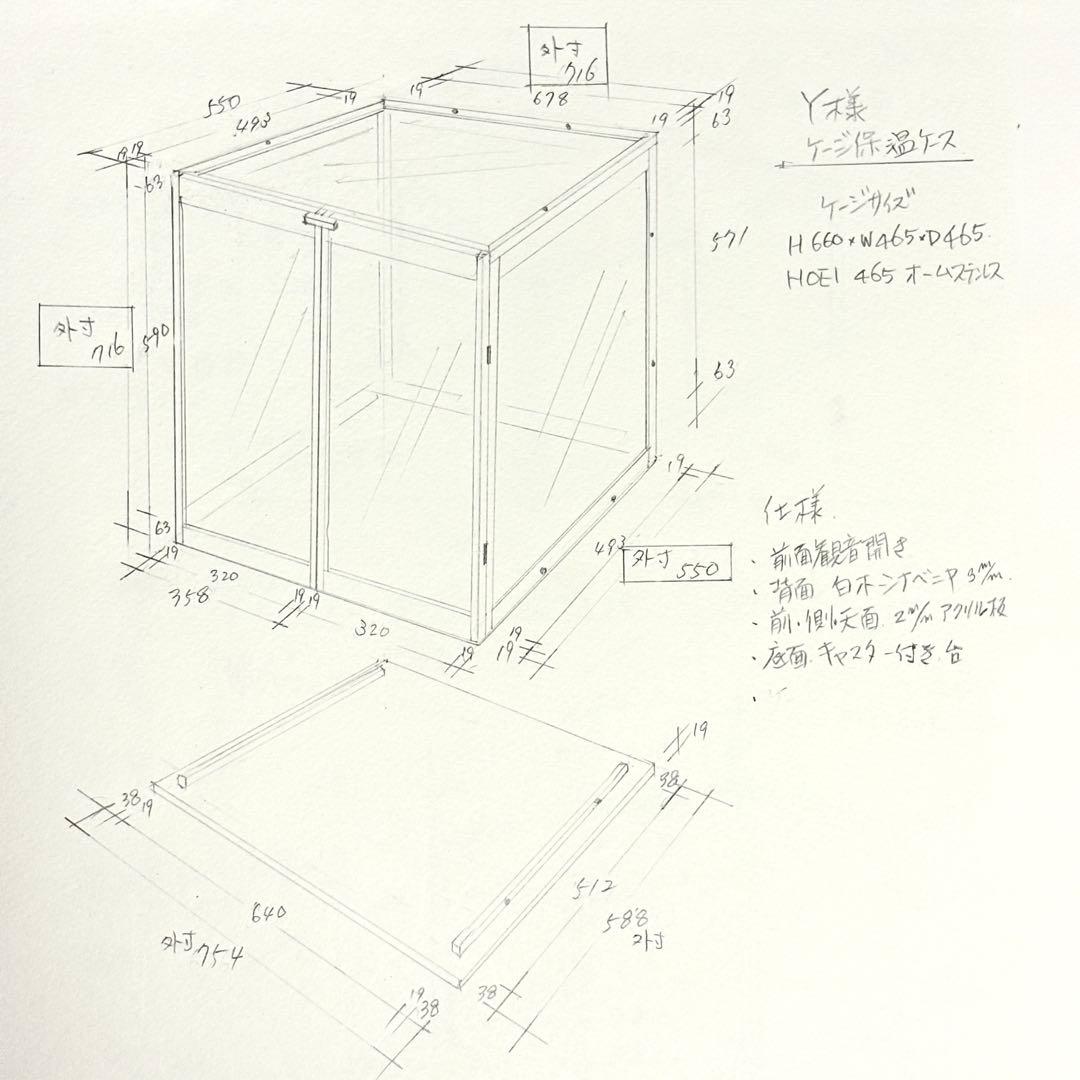 外寸
716
19
678
19
63
19
550
493
19
19
19
63
571
63
外寸
716
590
63
19
320
358
19
19
320
19
19
19
493
外寸
550
19
Y様
ケージ保温ケース
ケージサイズ
H660×W465×D465.
HOEI 465 オームステンレス
仕様.
・前面観音開き
・背面 白ホーシナベニヤ 3m/m.
・前、側、天面. 2m/m アクリル板
・底面. キャスター付き台
・
19
38
38
19
640
外寸 754
19
38
38
512
588
外寸